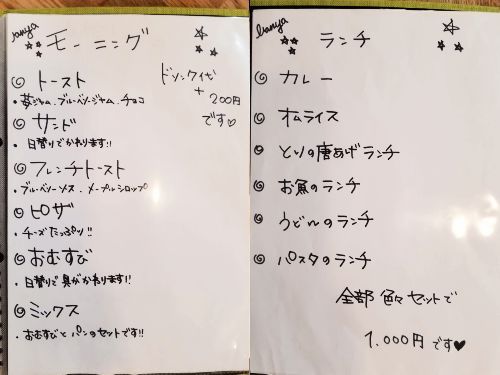 banya
モーニング
ドリンク代
+
200円
です♡
◎ トースト
・苺ジャム、ブルーベリージャム、チョコ
◎ サンド
・日替りでかわります!!
◎ フレンチトースト
・ブルーベリーソース、メープルシロップ
◎ ピザ
・チーズたっぷり!!
◎ おむすび
・日替りで具がかわります!!
◎ ミックス
・おむすびとパンのセットです!!
banya
ランチ
◎ カレー
◎ オムライス
◎ とりの唐あげランチ
◎ お魚のランチ
◎ うどんのランチ
◎ パスタのランチ
全部 色々セットで
1.000円です♥